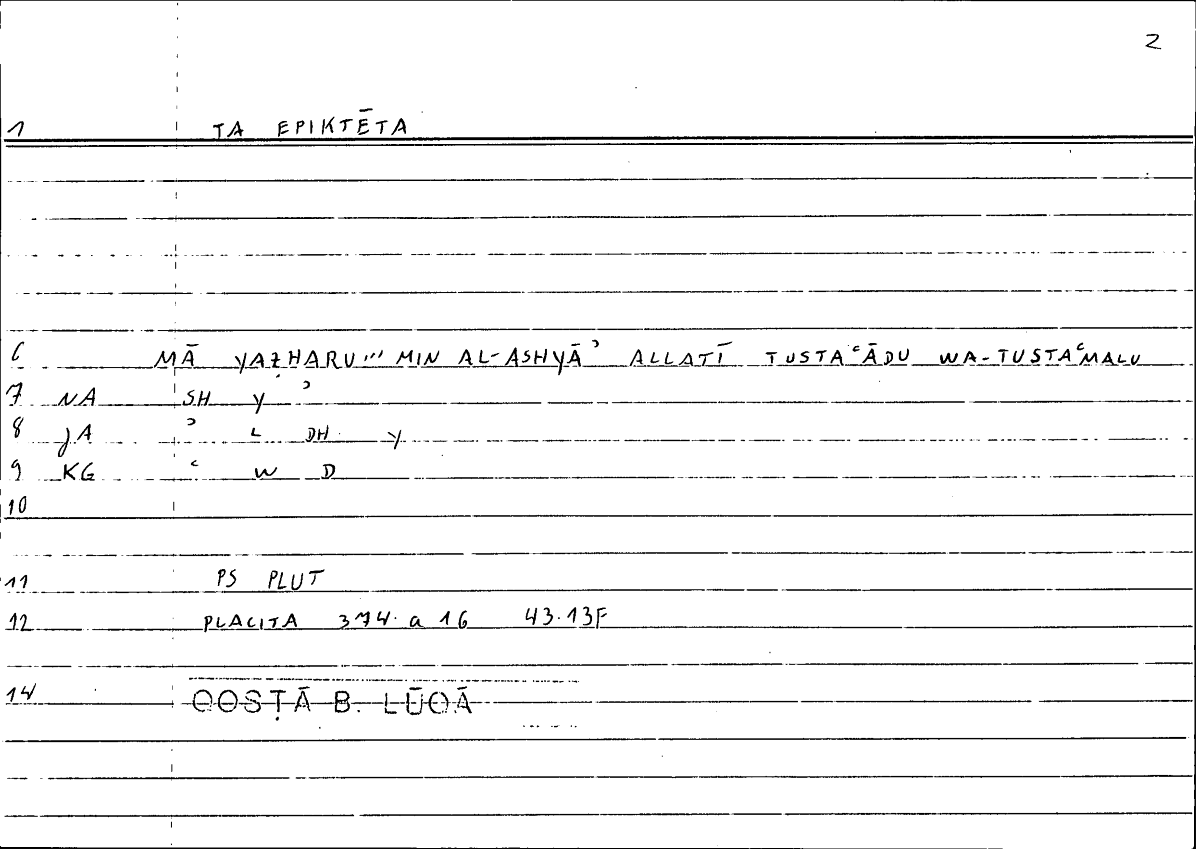 2
1 TA EPIKTĒTA
6 MĀ YAẒHARU''' MIN AL-ASHYĀʾ ALLATĪ TUSTAʿĀDU WA-TUSTAʿMALU
7 NA SH Y ʾ
8 JA ʾ L DH Y
9 KG ʿ W D
10
11 PS PLUT
12 PLACITA 374. a 16 43.13F
14 QOSṬĀ B. LŪQĀ